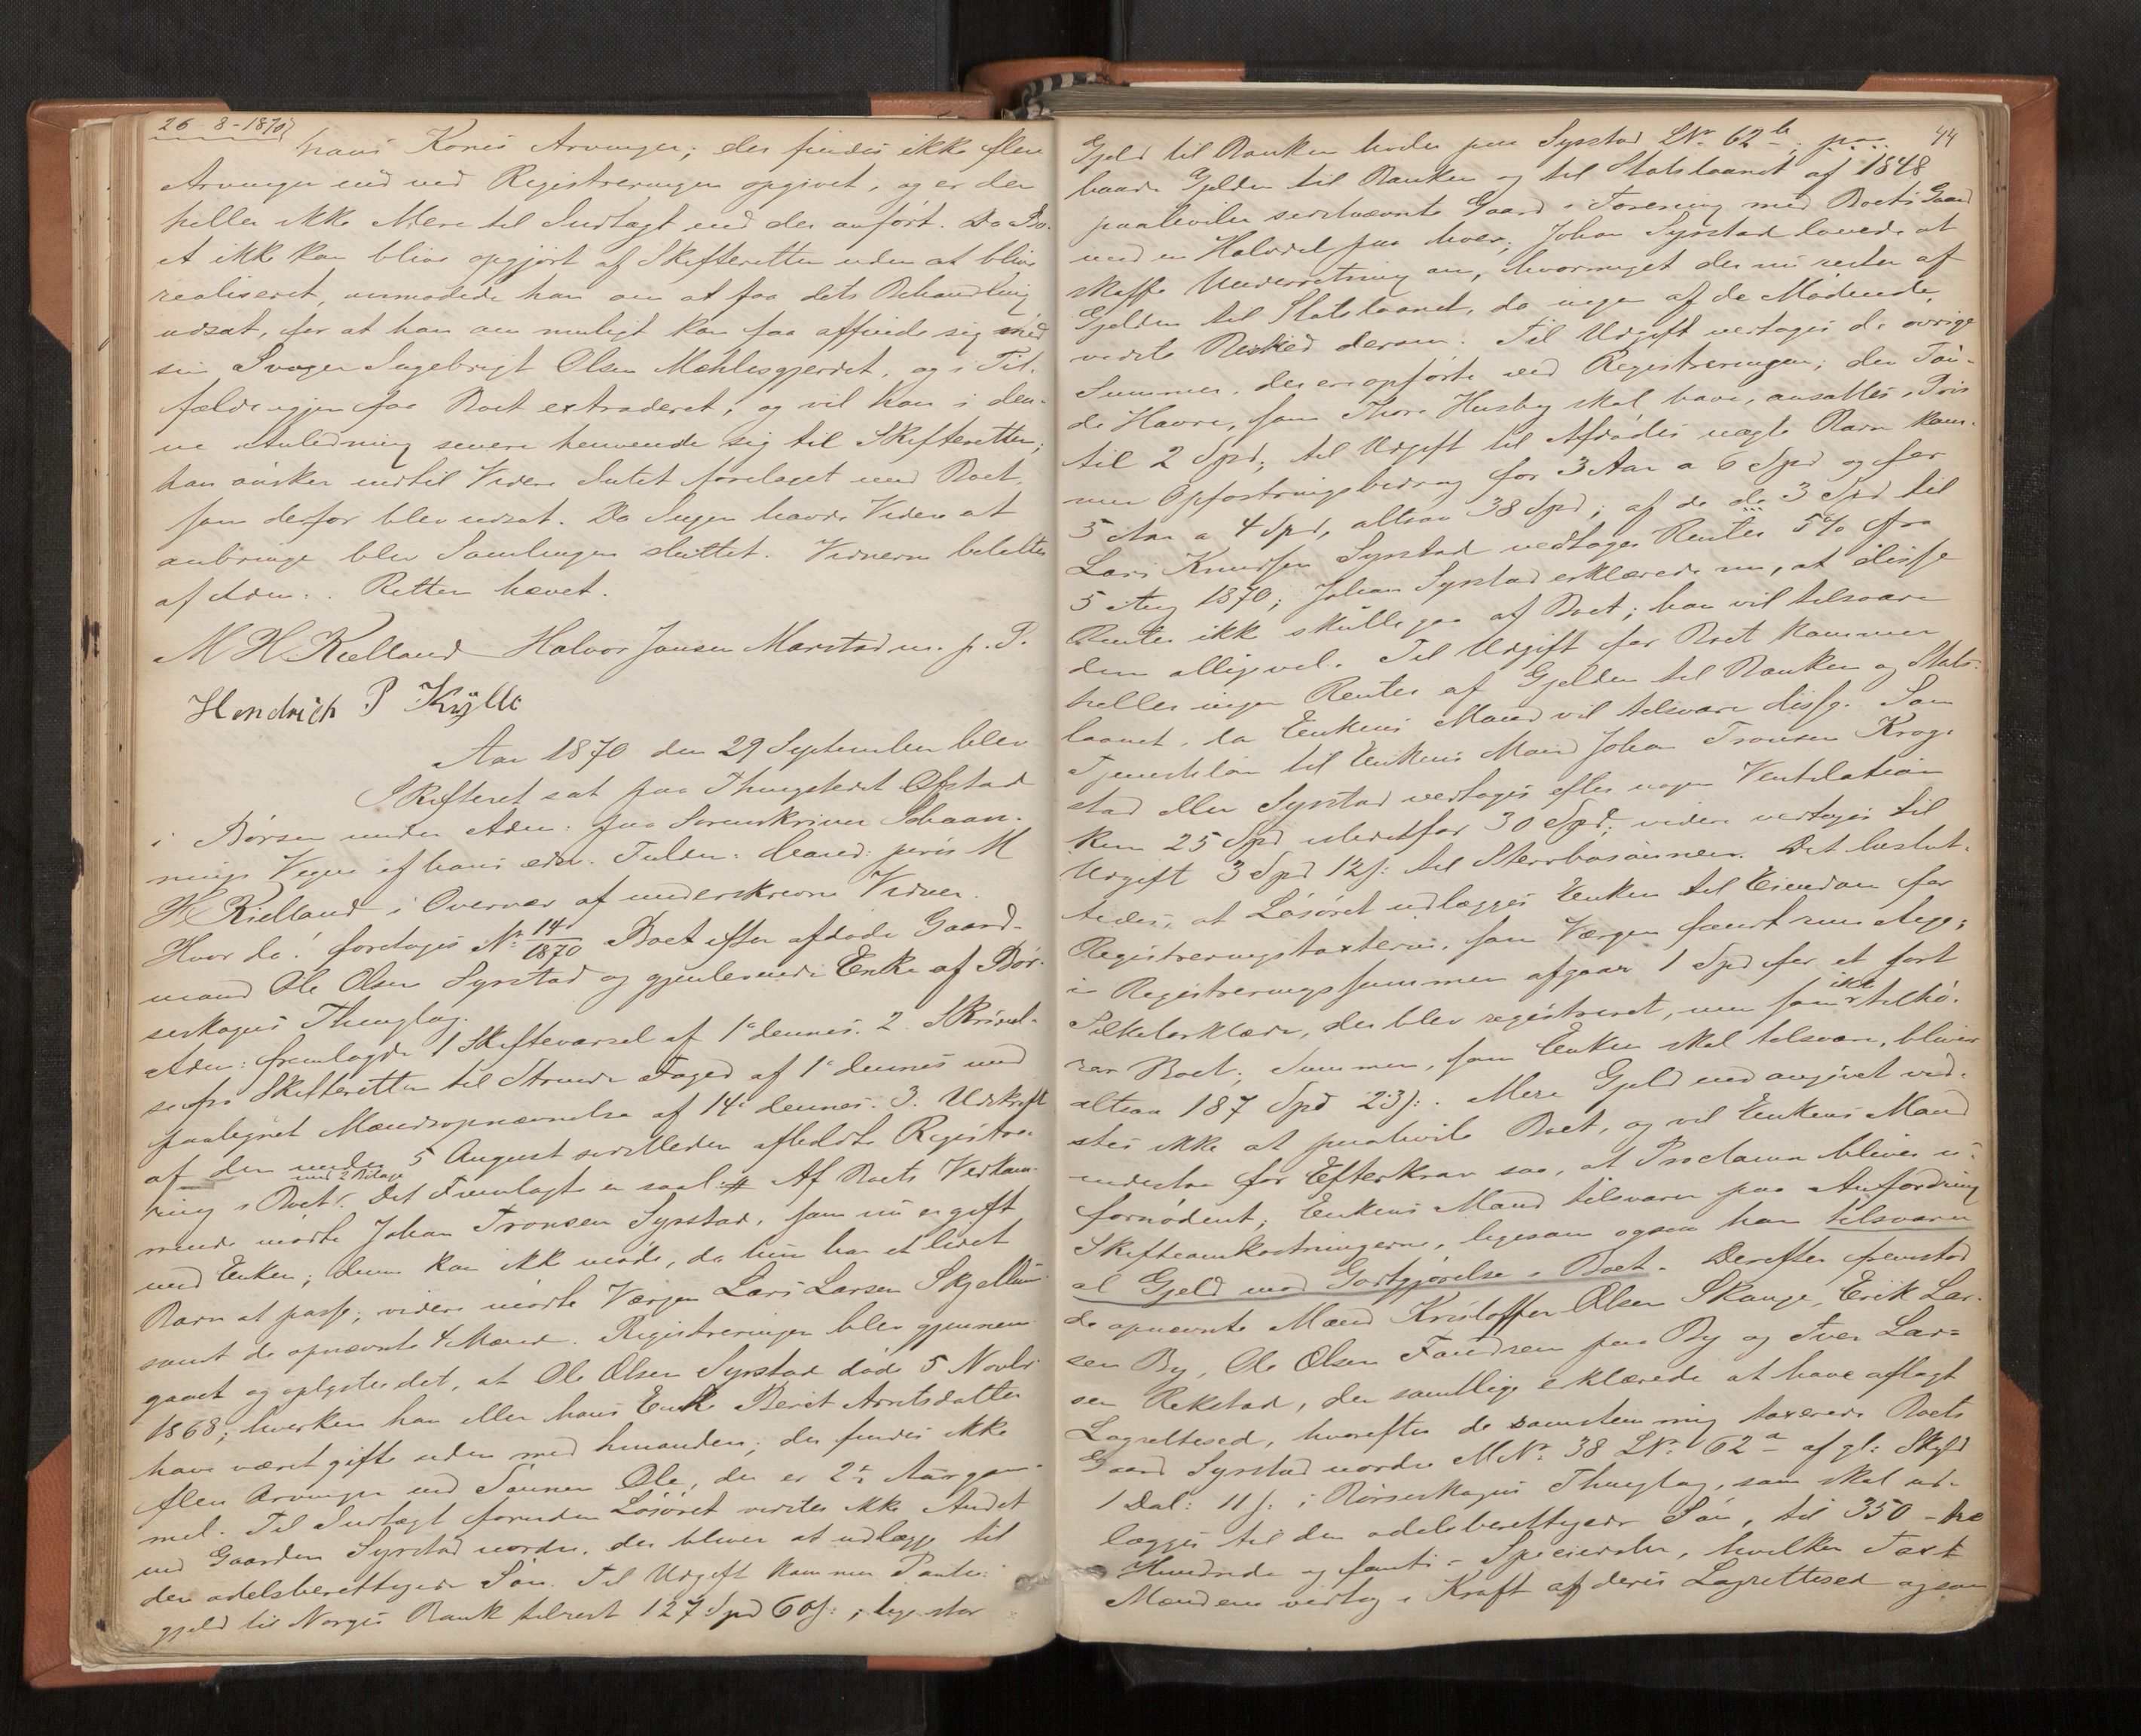 26-8-1870
hans Kones Arvinger; der findes ikke flere
Arvinger end ved Registreringen opgivet, og er der
heller ikke Mere til Indtægt end der anført. Da Bo-
et ikke kan blive opgjort af Skifteretten uden at blive
realiseret, anmodede han om at faa dets Behandling
udsat, for at han om muligt kan faa affinde sig med
sin Svoger Ingebrigt Olsen Mæhlesgjerdet, og i Til-
fælde igjen faa Boet extraderet, og vil han i den-
ne Anledning senere henvende sig til Skifteretten;
han ønsker indtil Videre Intet foretaget med Boet,
som derfor blev udsat. Da Ingen havde Videre at
anbringe blev Samlingen sluttet. Vidnerne betaltes
af Adm:. Retten hævet.
M H Kielland Halvor Jonsen Marstad m. p. P.
Hendrich P Kÿllo
Aar 1870 den 29 September blev
Skifteret sat paa Thingstedet Ofstad
i Børsen under Adm: paa Sorenskriver Schaan-
nings Vegne af hans edsv. Fuldm: Cand: juris M
H Kielland i Overvær af underskrevne Vidner.
Hvor da: foretoges Nr 14/1870 Boet efter afdøde Gaard-
mand Ole Olsen Syrstad og gjenlevende Enke af Bør-
seskogns Thinglag.
Adm: fremlagde 1 Skiftevarsel af 1e dennes. 2 Skrivel-
se fra Skifteretten til Strinde Foged af 1e dennes med
paategnet Mændsopnævnelse af 14e dennes. 3. Udskrift
af den under 5 August sidstleden afholdte Registre-
med 2 Bilage
ring i Boet. Det Fremlagte er saal: # Af Boets Vedkom-
mende mødte Johan Tronsen Syrstad, som nu er gift
med Enken; denne kan ikke møde, da hun har et lidet
Barn at passe; videre mødte Værgen Lars Larsen Skjellum
samt de opnævnte 4 Mænd. Registreringen blev gjennem-
gaaet og oplystes det, at Ole Olsen Syrstad døde 5 Novbr
1868; hverken han eller hans Enke Beret Arntsdatter
have været gifte uden med hinanden; der findes ikke
flere Arvinger end Sønnen Ole, der er 2 1/2 Aar gam-
mel. Til Indtægt foruden Løsøret vidstes ikke Andet
end Gaarden Syrstad nordre, der bliver at udlægge til
den odelsberettigede Søn. Til Udgift kommer Pante-
gjeld til Norges Bank tilrest 127 Spd 60 s:; lige stor
44
Gjeld til Banken hviler paa Syrstad LNr 62 b; paa
baade Gjelden til Banken og til Statslaanet af 1848
paahviler sidstnævnte Gaard i Forening med Boets Gaard
med en Halvdel paa hver; Johan Syrstad lovede at
skaffe Underretning om, hvormeget der nu rester af
Gjelden til Statslaanet, da ingen af de Mødende
vidste Besked derom. Til Udgift vedtoges de øvrige
Summer, der ere opførte ved Registreringen; den Tøn-
de Havre, som Thore Husby skal have, ansattes i Pris
til 2 Spd; til Udgift til Afdødes uægte Barn kom-
mer Opfostringsbidrag for 3 Aar a 6 Spd og for
5 Aar a 4 Spd, altsaa 38 Spd; af de 3 Spd til
Lars Knudsen Syrstad vedtoges Renter 5 % fra
5 Aug 1870; Johan Syrstad erklærede nu, at disse
Renter ikke skulle gaa af Boet; han vil tilsvare
dem alligevel. Til Udgift for Boet kommer
heller ingen Renter af Gjelden til Banken og Stats-
laanet, da Enkens Mand vil tilsvare disse. Som
Tjenesteløn til Enkens Mand Johan Tronsen Krog-
stad eller Syrstad vedtoges efter nogen Ventilation
kun 25 Spd istedetfor 30 Spd; videre vedtoges til
Udgift 3 Spd 12 s: til Stervbosønnen. Det beslut-
tedes, at Løsøret udlægges Enken til Eiendom for
Registreringstaxterne, som Værgen fandt rimelige;
i Registreringssummen afgaar 1 Spd for et sort
ikke
Silketørklæde, der blev registreret, men som tilhø-
rer Boet; Summen, som Enken skal tilsvare, bliver
altsaa 187 Spd 23 s:. Mere Gjeld end angivet vid-
stes ikke at paahvile Boet, og vil Enkens Mand
indestaa for Efterkrav saa, at Proclama bliver u-
fornødent; Enkens Mand tilsvarer paa Anfordring
Skifteomkostningerne, ligesom ogsaa han tilsvarer
al Gjeld mod Godtgjørelse i Boet. Derefter fremstod
de opnævnte Mænd Kristoffer Olsen Skauge, Erik Lar-
sen By, Ole Olsen Landsem paa By og Iver Lar-
sen Rekstad, der samtlige erklærede at have aflagt
Lagrettesed, hvorefter de samstemmig taxerede Boets
Gaard Syrstad nordre MNr. 38 LNr. 62 a af gl: Skyld
1 Dal: 11 s: i Børseskogns Thinglag, som skal ud-
lægges til den odelsberettigede Søn, til 350 - tre
Hundrede og femti - Speciedaler, hvilken Taxt
Mændene vedtog i Kraft af deres Lagrettesed ogsaa